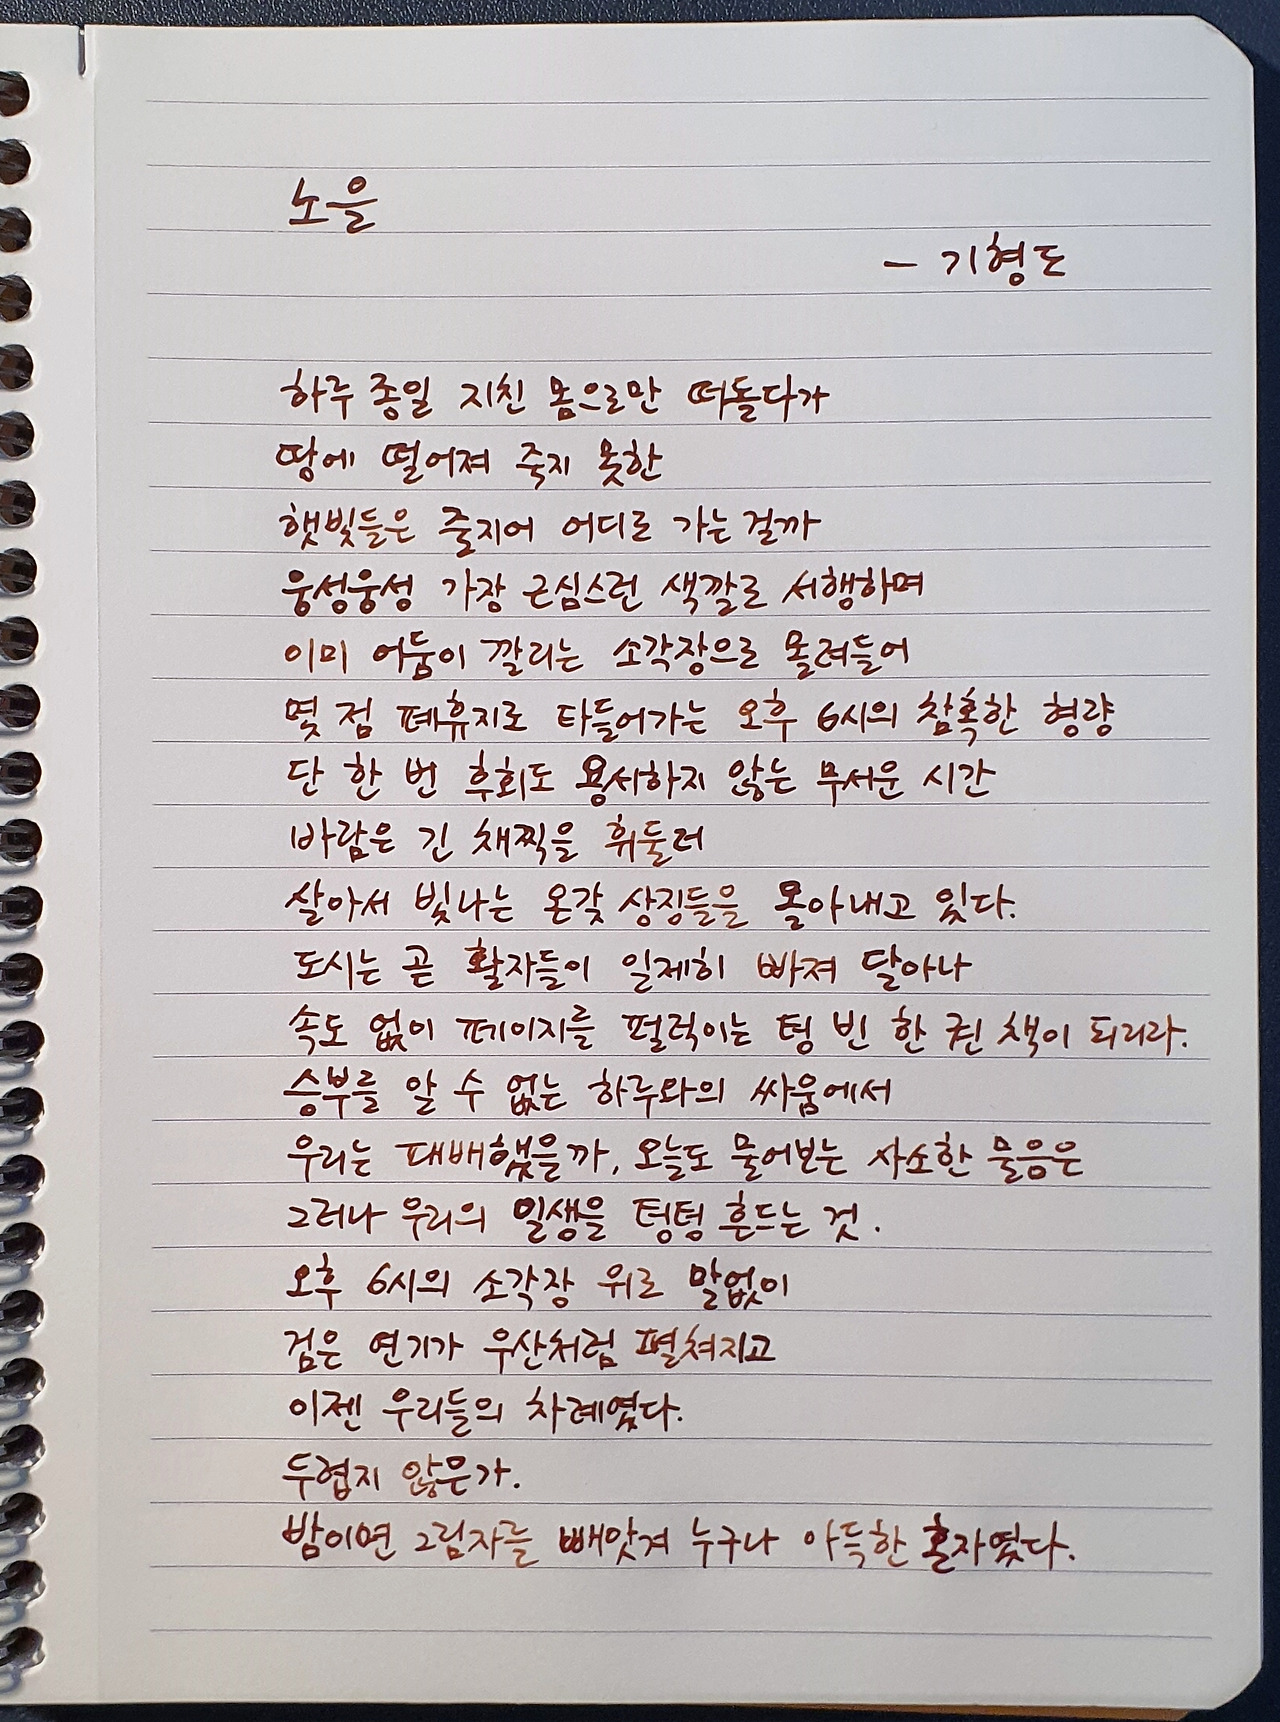 노을
- 기형도
하루 종일 지친 몸으로만 떠돌다가
땅에 떨어져 죽지 못한
햇빛들은 줄지어 어디로 가는 걸까
웅성웅성 가장 근심스런 색깔로 서행하며
이미 어둠이 깔리는 소각장으로 몰려들어
몇 점 폐휴지로 타들어가는 오후 6시의 참혹한 형량
단 한 번 후회도 용서하지 않는 무서운 시간
바람은 긴 채찍을 휘둘러
살아서 빛나는 온갖 상징들을 몰아내고 있다.
도시는 곧 활자들이 일제히 빠져 달아나
속도 없이 페이지를 펄럭이는 텅 빈 한 권 책이 되리라.
승부를 알 수 없는 하루와의 싸움에서
우리는 패배했을까, 오늘도 물어보는 사소한 물음은
그러나 우리의 일생을 텅텅 흔드는 것.
오후 6시의 소각장 위로 말없이
검은 연기가 우산처럼 펼쳐지고
이젠 우리들의 차례였다.
두렵지 않은가.
밤이면 그림자를 빼앗겨 누구나 아득한 혼자였다.